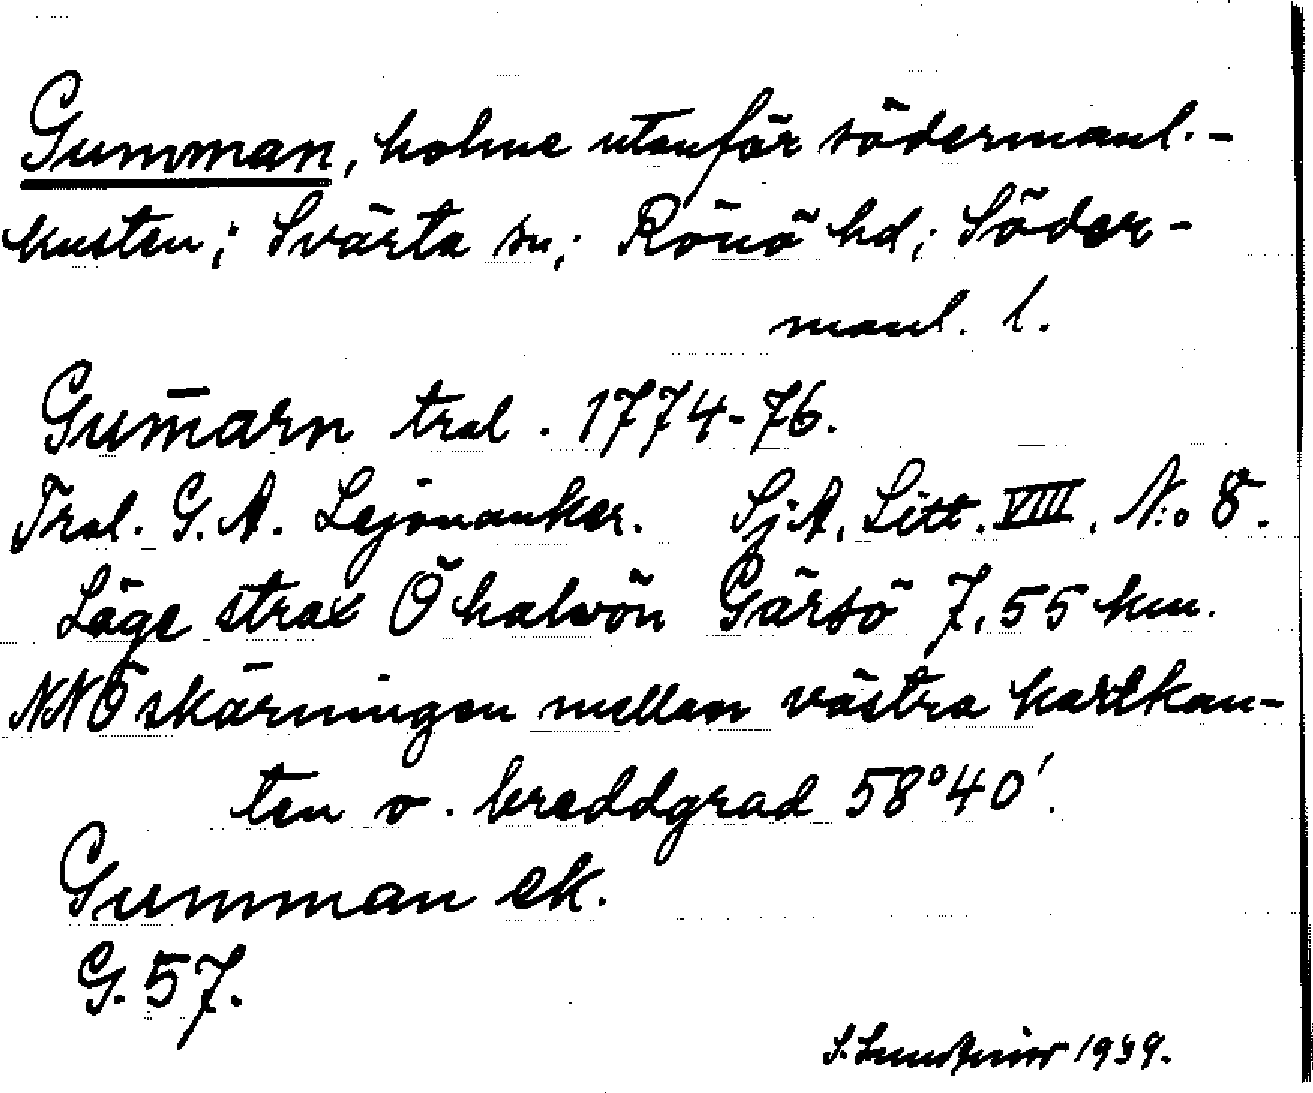 Gumman, holme utanför södermanl.-
kusten; Svärta sn; Rönö hd; Söder-
manl. l.
Gum̄arn tral. 1774-76.
Tral. G. A. Lejonanker. SjA. Litt. VIII. N:o 8.
Läge strax Ö halvön Gärsö 7,55 km.
NNÖ skärningen mellan västra kartkan-
ten o. breddgrad 58°40'.
Gumman ek.
G. 57.
1939.